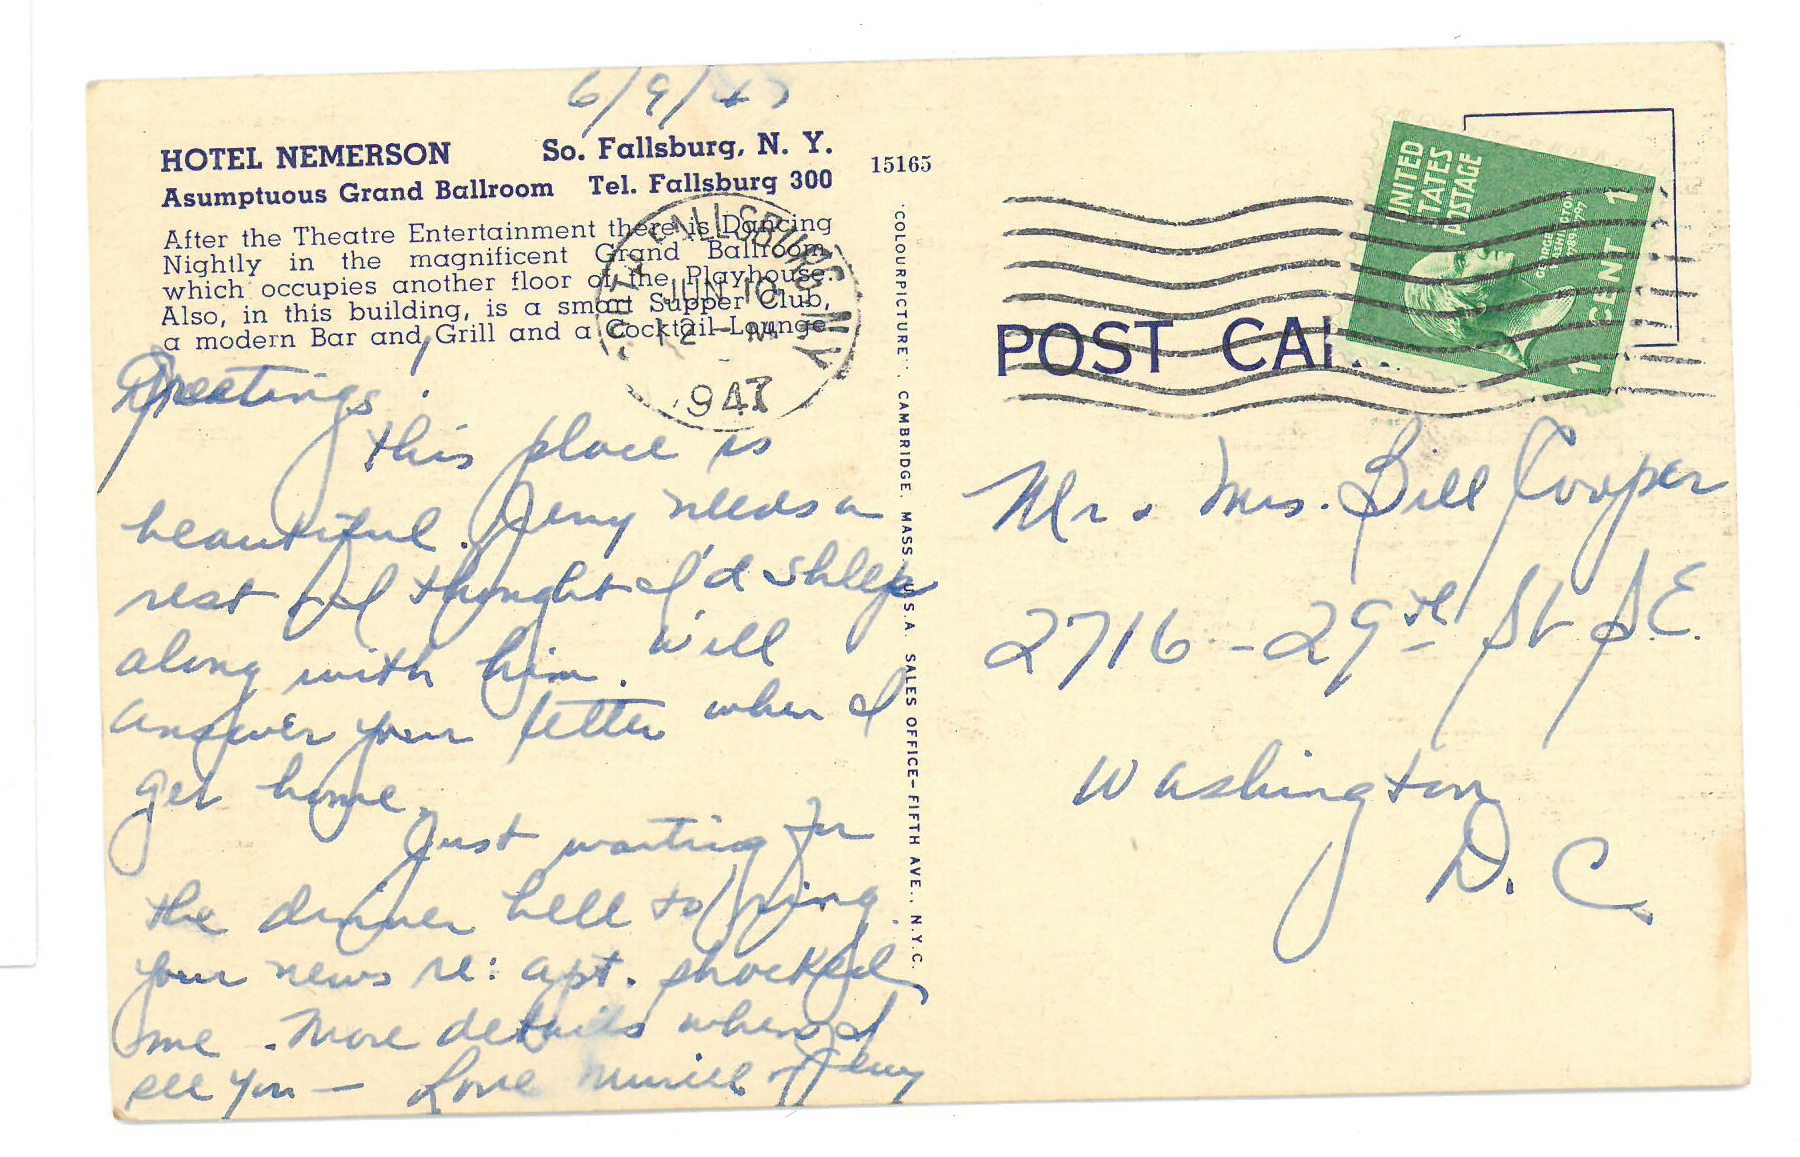 6/9/47
HOTEL NEMERSON So. Fallsburg, N. Y.
Asumptuous Grand Ballroom Tel. Fallsburg 300
15165
After the Theatre Entertainment there is Dancing
Nightly in the magnificent Grand Ballroom
which occupies another floor of the Playhouse.
Also, in this building, is a smart Supper Club,
a modern Bar and Grill and a Cocktail Lounge
FALLSBURG N.Y.
JUN 10
12 - M
1947
Greetings!
This place is
beautiful. Jerry needs a
rest & I thought I'd shlep
along with him. Will
answer your letter when I
get home.
Just waiting for
the dinner bell to ring.
Your news re: apt. shocked
me. More details when I
see you — Love Muriel & Jerry
COLOURPICTURE CAMBRIDGE, MASS., U.S.A. SALES OFFICE—FIFTH AVE., N.Y.C.
POST CA
UNITED
STATES
POSTAGE
GEORGE WASHINGTON
1789 1797
1 CENT 1
Mr. Mrs. Bill Cooper
2716 - 29th St S.E.
Washington
D. C.